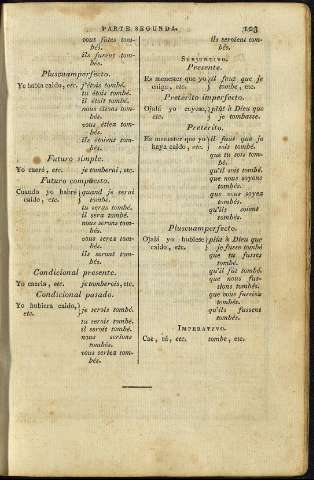 PARTE SEGUNDA. 123
vous futes tom-
bés.
ils furent tom-
bés.
Pluscuamperfecto.
Yo habia caido, etc. j'étois tombé.
tu étois tombé.
il étoit tombé.
nous étions tom-
bés.
vous étiez tom-
bés.
ils étoient tom-
bés.
Futuro simple.
Yo caeré, etc. je tomberai, etc.
Futuro compuesto.
Cuando yo habré } quand je serai
caido, etc. } tombé.
tu seras tombé.
il sera tombé.
nous serons tom-
bés.
vous serez tom-
bés.
ils seront tom-
bés.
Condicional presente.
Yo caeria, etc. je tomberois, etc.
Condicional pasado.
Yo hubiera caido, } je serois tombé.
etc.
tu serois tombé.
il seroit tombé.
nous serions
tombés.
vous seriez tom-
bés.
ils seroient tom-
bés.
SUBJUNTIVO.
Presente.
Es menester que yo } il faut que je
caiga, etc. } tombe, etc.
Pretérito imperfecto.
Ojalá yo cayese, } plût à Dieu que
etc. } je tombasse.
Pretérito.
Es menester que yo } il faut que je
haya caido, etc. } sois tombé.
que tu sois tom-
bé.
qu'il soit tombé.
que nous soyons
tombés.
que vous soyez
tombés.
qu'ils soient
tombés.
Pluscuamperfecto.
Ojalá yo hubiese } plût à Dieu que
caido, etc. } je fusse tombé
que tu fusses
tombé.
qu'il fût tombé.
que nous fus-
sions tombés.
que vous fussiez
tombés.
qu'ils fussent
tombés.
IMPERATIVO.
Cae, tú, etc. tombe, etc.